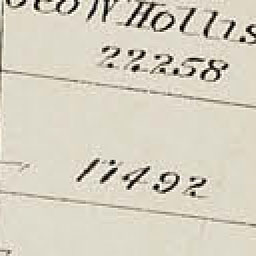 Geo W Hollis
22258
17492